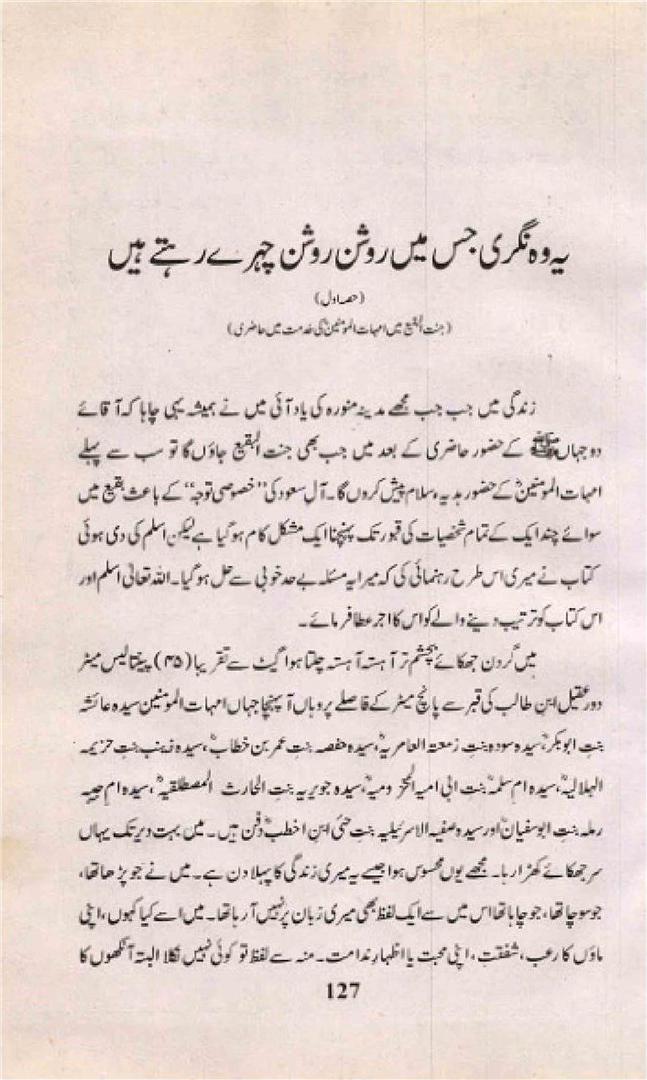 یہ وہ نگری جس میں روشن روشن چہرے رہتے ہیں
(حصہ اول)
(جنت البقیع میں امہات المومنینؓ کی خدمت میں حاضری)
زندگی میں جب جب مجھے مدینہ منورہ کی یاد آئی میں نے ہمیشہ یہی چاہا کہ آقائے
دو جہاں ﷺ کے حضور حاضری کے بعد میں جب بھی جنت البقیع جاؤں گا تو سب سے پہلے
امہات المومنینؓ کے حضور ہدیہ سلام پیش کروں گا۔ آلِ سعود کی ”خصوصی توجہ“ کے باعث بقیع میں
سوائے چند ایک کے تمام شخصیات کی قبور تک پہنچنا ایک مشکل کام ہو گیا ہے لیکن اسلم کی دی ہوئی
کتاب نے میری اس طرح رہنمائی کی کہ میرا یہ مسئلہ بے حد خوبی سے حل ہو گیا۔ اللہ تعالیٰ اسلم اور
اس کتاب کو ترتیب دینے والے کو اس کا اجر عطا فرمائے۔
میں گردن جھکائے بچشمِ تر آہستہ آہستہ چلتا ہوا گیٹ سے تقریبا (۴۵) پینتالیس میٹر
دور عقیل ابنِ طالب کی قبر سے پانچ میٹر کے فاصلے پر وہاں آ پہنچا جہاں امہات المومنین سیدہ عائشہ
بنتِ ابوبکرؓ، سیدہ سودہ بنتِ زمعتہ العامریہؓ، سیدہ حفصہ بنتِ عمر بن خطابؓ، سیدہ زینب بنتِ خزیمہ
الہلالیہؓ، سیدہ ام سلمہؓ بنت ابی امیہ المخزومیہؓ، سیدہ جویریہ بنتِ الحارث المصطلقیہؓ، سیدہ ام حبیبہ
رملہ بنتِ ابوسفیانؓ اور سیدہ صفیہ الاسرئیلیہ بنتِ حئی ابنِ اخطبؓ دفن ہیں۔ میں بہت دیر تک یہاں
سر جھکائے کھڑا رہا۔ مجھے یوں محسوس ہوا جیسے یہ میری زندگی کا پہلا دن ہے۔ میں نے جو پڑھا تھا،
جو سوچا تھا، جو چاہا تھا اس میں سے ایک لفظ بھی میری زبان پر نہیں آ رہا تھا۔ میں اسے کیا کہوں، اپنی
ماؤں کا رعب، شفقت، اپنی محبت یا اظہارِ ندامت۔ منہ سے لفظ تو کوئی نہیں نکلا البتہ آنکھوں کا
127